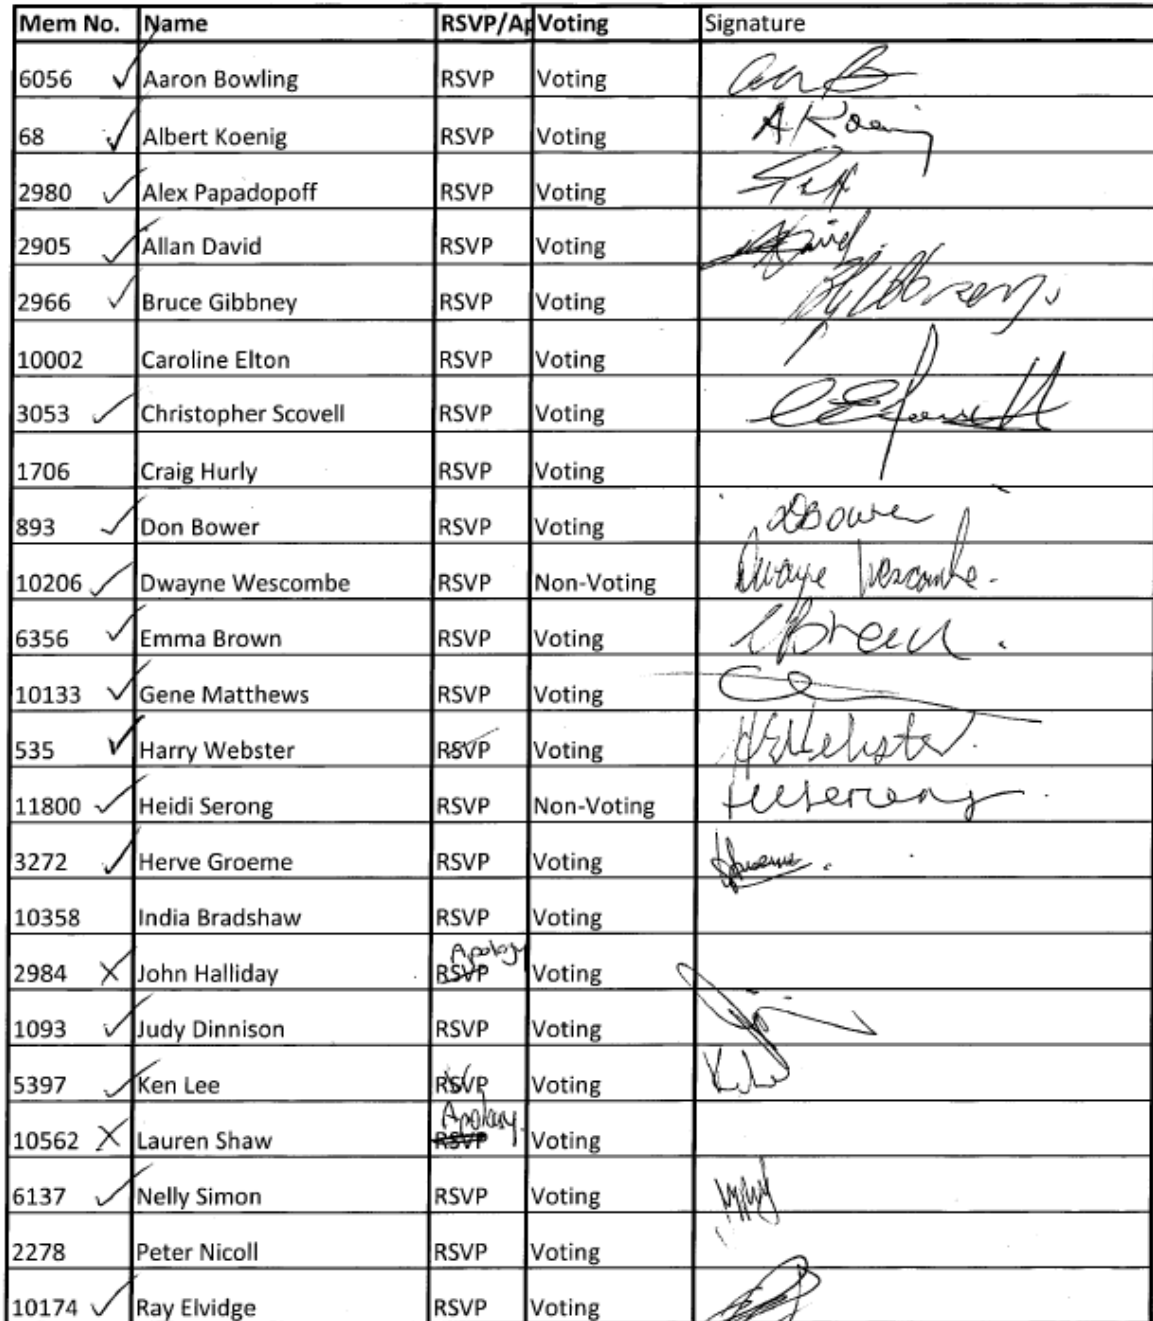 Mem No. Name RSVP/Ap Voting Signature
6056 Aaron Bowling RSVP Voting
68 Albert Koenig RSVP Voting A Koenig
2980 Alex Papadopoff RSVP Voting
2905 Allan David RSVP Voting ADavid
2966 Bruce Gibbney RSVP Voting
10002 Caroline Elton RSVP Voting
3053 Christopher Scovell RSVP Voting
1706 Craig Hurly RSVP Voting
893 Don Bower RSVP Voting DBower
10206 Dwayne Wescombe RSVP Non-Voting Dwayne Wescombe.
6356 Emma Brown RSVP Voting EBrown.
10133 Gene Matthews RSVP Voting
535 Harry Webster RSVP Voting HEWebster.
11800 Heidi Serong RSVP Non-Voting
3272 Herve Groeme RSVP Voting
10358 India Bradshaw RSVP Voting
Apology
2984 John Halliday RSVP Voting
1093 Judy Dinnison RSVP Voting
5397 Ken Lee RSVP Voting
Apology.
10562 Lauren Shaw RSVP Voting
6137 Nelly Simon RSVP Voting
2278 Peter Nicoll RSVP Voting
10174 Ray Elvidge RSVP Voting